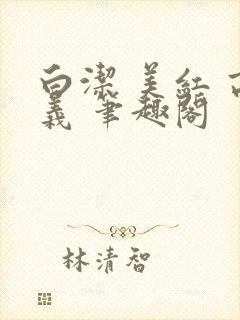 白潔 美红
義 筆趣閣
林清智